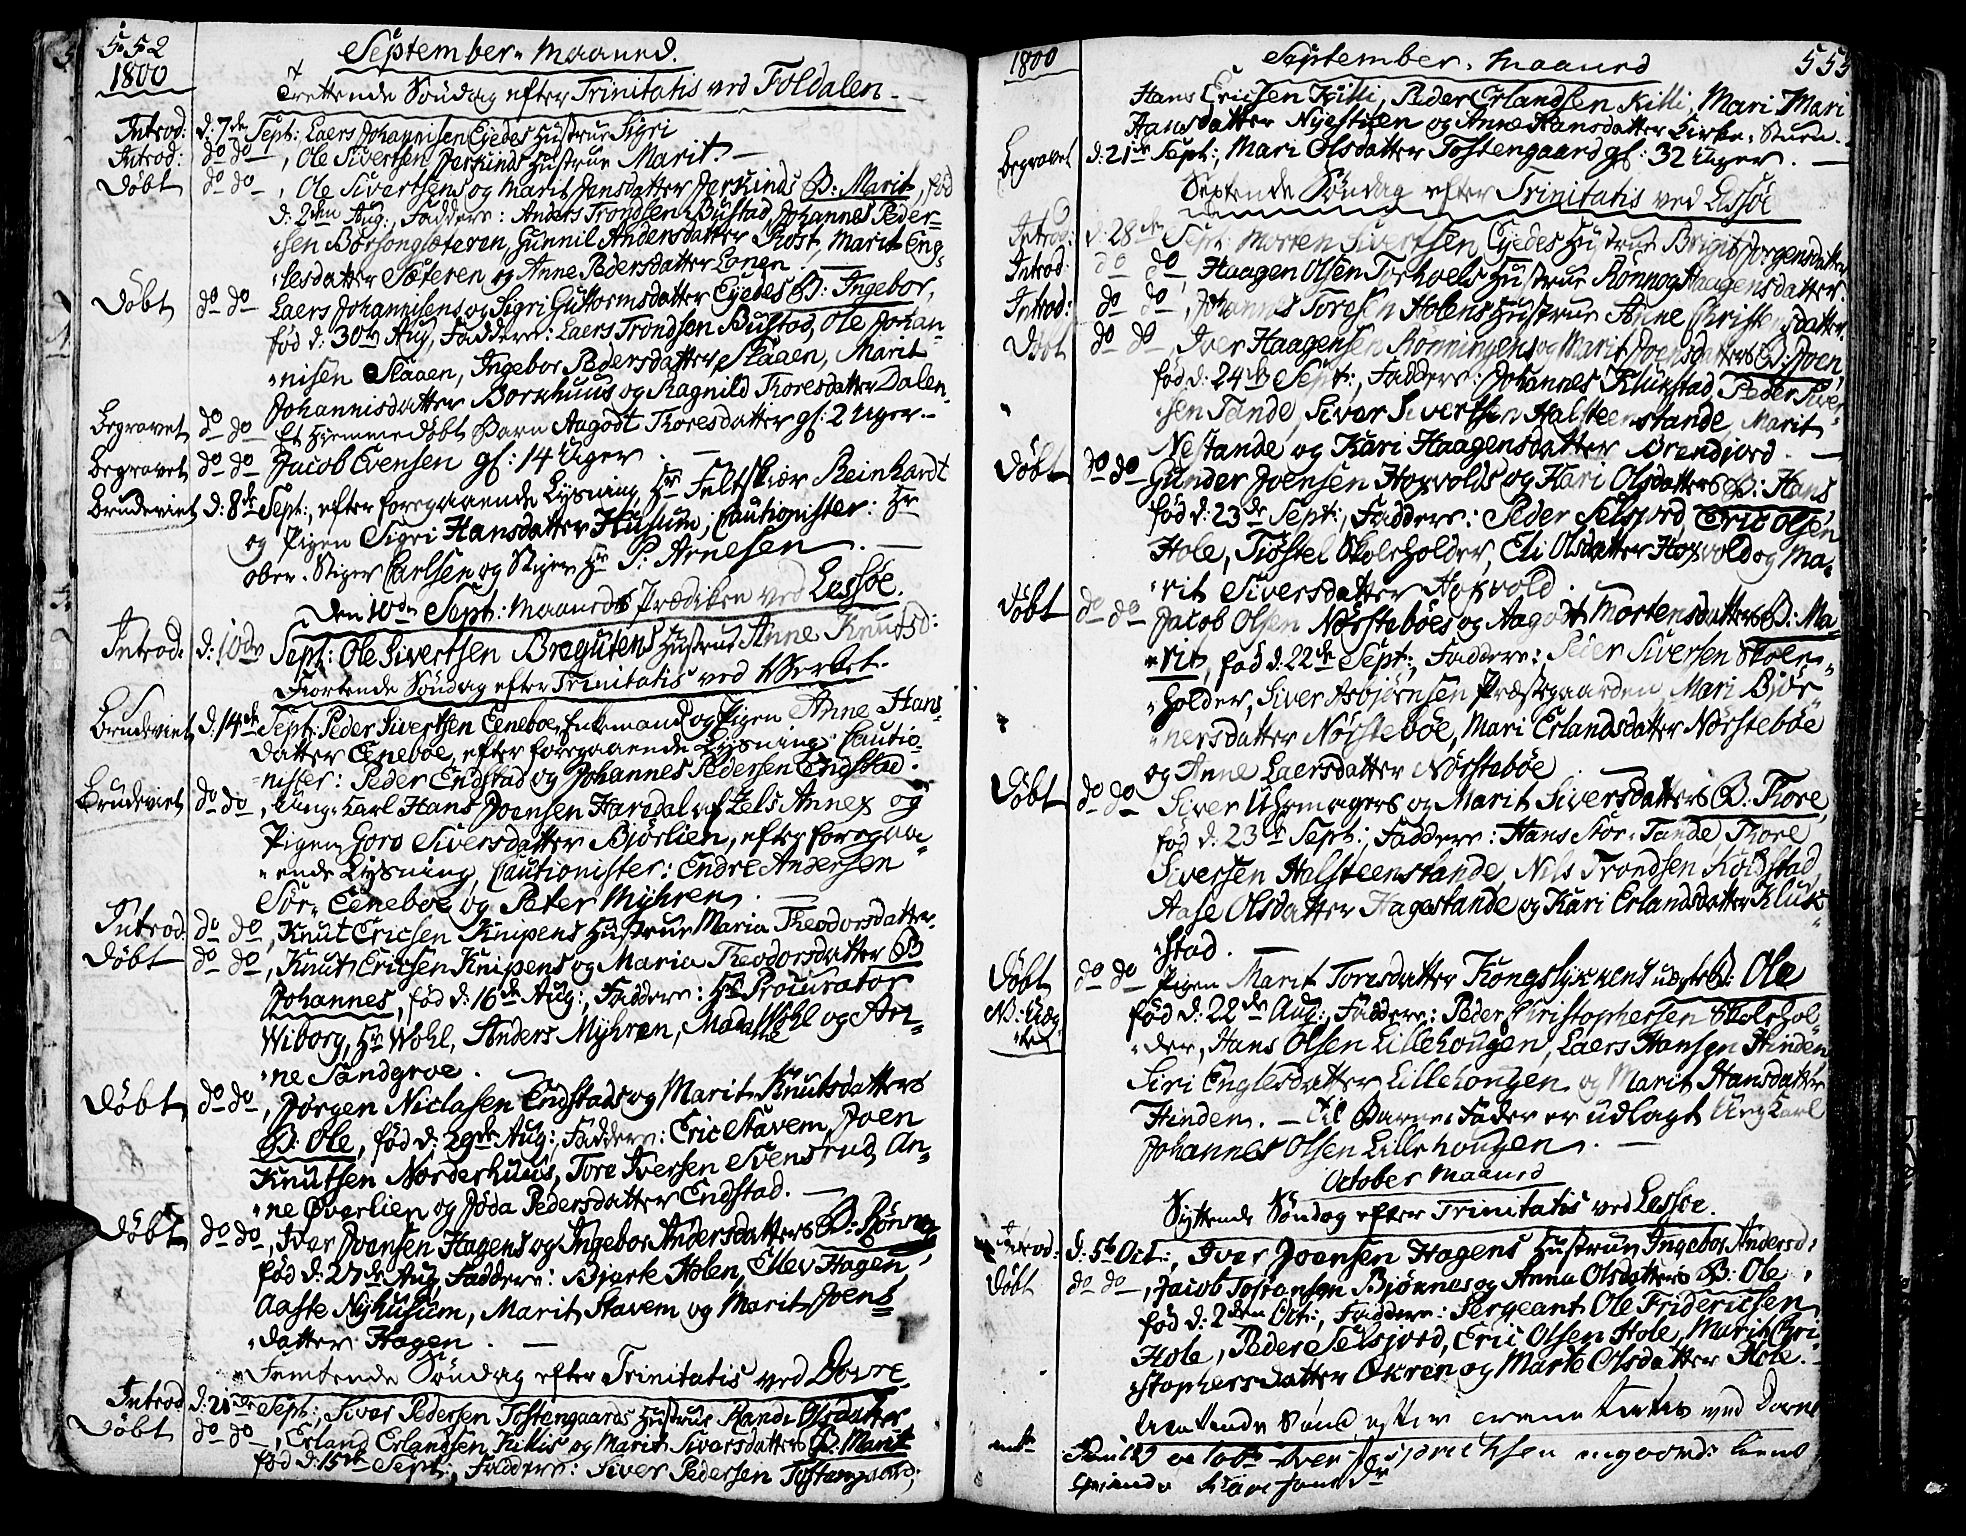 552
1800
September Maaned.
Trettende Söndag efter Trinitatis ved Foldalen
Introd: d: 7de Sept: Laers Johannisen Eyedes Hustrue Sigri
Introd: do do, Ole Sivertsen Jerkinds Hustrue Marit.
Döbt do do, Ole Sivertsens og Marit Jensdatter Jerkinds B: Marit, föd
d: 2den Aug:, Faddere: Anders Trondsen Bustad, Johannes Peder-
sen Börsongsæteren, Gunnil Andersdatter Röst, Marit Eng-
lesdatter Sæteren og Anne Pedersdatter Lonen
Döbt do do Laers Johannisens og Sigri Guttormsdatter Eyedes B: Ingebor,
föd d: 30te Aug, Faddere: Laers Trondsen Bustad, Ole Johan-
nisen Slaaen, Ingebor Pedersdatter Slaaen, Marit
Johannisdatter Borkhuus og Ragnild Thoresdatter Dalen.
Begravet do do Et Hjemmedöbt Barn Aagodt Thoresdatter gl: 2 Uger
Begravet do do Jacob Evensen gl: 14 Uger
Brudeviet d: 8de Sept:, efter foregaaende Lysning, Hr Feltskiær Reinhardt
og Pigen Sigri Hansdatter Husum, Cautionister: Hr
ober-Stiger Carlsen og Stiger Hr P: Arnesen
Den 10de Sept: Maaneds Prædiken ved Lessöe.
Introd: d: 10de Sept: Ole Sivertsen Braglutens Hustrue Anne Knudsd:
Fiortende Söndag efter Trinitatis ved
Brudeviet d: 14de Sept: Peder Sivertsen Eeneboe Enkemand og Pigen Anne Hans-
datter Eeneboe, efter foregaaende Lysning, Cautio-
nister: Peder Endstad og Johannes Pedersen Endstad.
Brudeviet do do, Ung-Karl Hans Joensen Haredal af Lels Annex og
Pigen Goro Siversdatter Bjórlien, efter foregaa-
ende Lysning, Cautionister: Endre Andersen
Sör-Eeneboe og Peter Myhren
Introd do do, Knut Ericsen Knipens Hustrue Maria Theodorsdatter.
Döbt do do, Knut Ericsen Knipens og Maria Theodorsdatter B
Johannes, föd d: 16de Aug:, Faddere: Hr Procurator
Wiborg, Hr Wohl, Anders Myhren, Madame Wohl og An-
ne Sandgroe.
Döbt do do, Jörgen Niclasen Endstads og Marit Knutsdatters
B: Ole, föd d: 29de Aug:, Faddere: Eric Stavem, Joen
Knutsen Norderhuus, Tore Iversen Svenstrud, An-
ne Överlien og Jöda Pedersdatter Endstad.
Döbt do do, Iver Joensen Hagens og Ingebor Andersdatters B: Rönnog
föd d: 27de Aug, Faddere: Bjarte Holen, Ellev Hagen
Aaste Nyhusum, Marit Stavem og Marit Joens-
datter Hagen.
Femtende Söndag efter Trinitatis ved Dovre
Introd d: 21de Sept: Siver Pedersen Tostengaards Hustrue Randi Olsdatter
Döbt do do, Erland Erlandsen Killis og Marit Siversdatters B: Marit
föd d: 15de Sept:, Faddere: Siver Pedersen Tostengaard,
1800
September Maaned
553
Hans Ericsen Killi, Peder Erlandsen Killi, Mari Mari
Hansdatter Nyestuen og Anne Hansdatter Kirke-Stuen.
Begravet d: 21de Sept:, Mari Olsdatter Tostengaard gl: 32 Uger.
Sextende Söndag efter Trinitatis ved Lessöe
Introd: d: 28de Sept: Morten Sivertsen Eyedes Hustrue Brigit Jörgensdatter
Introd: do do, Haagen Olsen Torhoels Hustrue Rönnog Haagensdatter.
Introd: do do, Johannes Toresen Holens Hustrue Anne Christensdatter.
Döbt do do, Iver Haagensen Rönningens og Marit Joensdatters B: Joen,
föd d: 24de Sept:, Faddere: Johannes Klukstad, Peder Siver-
sen Sande, Sivar Sivertsen Halsteenstande, Marit
Nestande og Kari Haagensdatter Brendjord.
Döbt do do Gunder Joensen Hoxvolds og Kari Olsdatters B: Hans
föd d: 23de Sept:, Faddere: Peder Selsjord, Eric Olsen
Hole, Tiöstel Skoleholder, Eli Olsdatter Hoxvold og Ma-
rit Siversdatter Hoxvold.
Döbt do do Jacob Olsen Nörsteböes og Aagodt Mortensdatters B: Ma-
rit, föd d: 22de Sept:, Faddere: Peder Siversen Skole-
holder, Siver Asbjörnsen Præstegaarden, Mari Björ-
nersdatter Nörsteböe, Mari Erlandsdatter Nörsteböe
og Anne Laersdatter Nörsteböe
Döbt do do Siver Uhrmagers og Marit Siversdatters B: Thore,
föd d: 23de Sept:, Faddere: Hans Stor-Tande, Thore
Siversen Halsteenstande, Nils Trondsen Kolstad,
Aase Olsdatter Hagestande og Kari Erlandsdatter Kluk-
stad.
Döbt do do Pigen Marit Toresdatter Kongslykkens uægte B: Ole
N: Uæg-
te
föd d: 22de Aug:, Faddere: Peder Christophersen Skolehol-
der, Hans Olsen Lillehougen, Laers Hansen Hinden
Siri Englesdatter Lillehougen og Marit Hansdatter
Hinden. Til Barne-Fader er udlagt Ung Karl
Johannes Olsen Lillehougen.
October Maaned
Syttende Söndag efter Trinitatis ved Lessöe.
Introd: d: 5te Oct:, Iver Joensen Hagens Hustrue Ingebor Andersd:
Döbt do do, Jacob Tostensen Bjönnes og Anna Olsdatters B: Ole,
föd d: 2den Oct:, Faddere: Sergeant Ole Fridericsen
Hole, Peder Selsjord, Eric Olsen Hole, Marit Chri-
stophersdatter Ökren og Marte Olsdatter Hole.
Attende Sönd efter Trinitatis ved Dovre